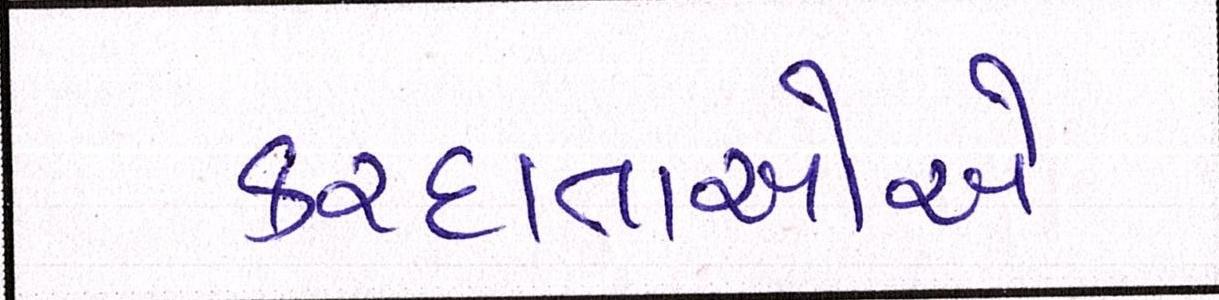 કરદાતાઓએ